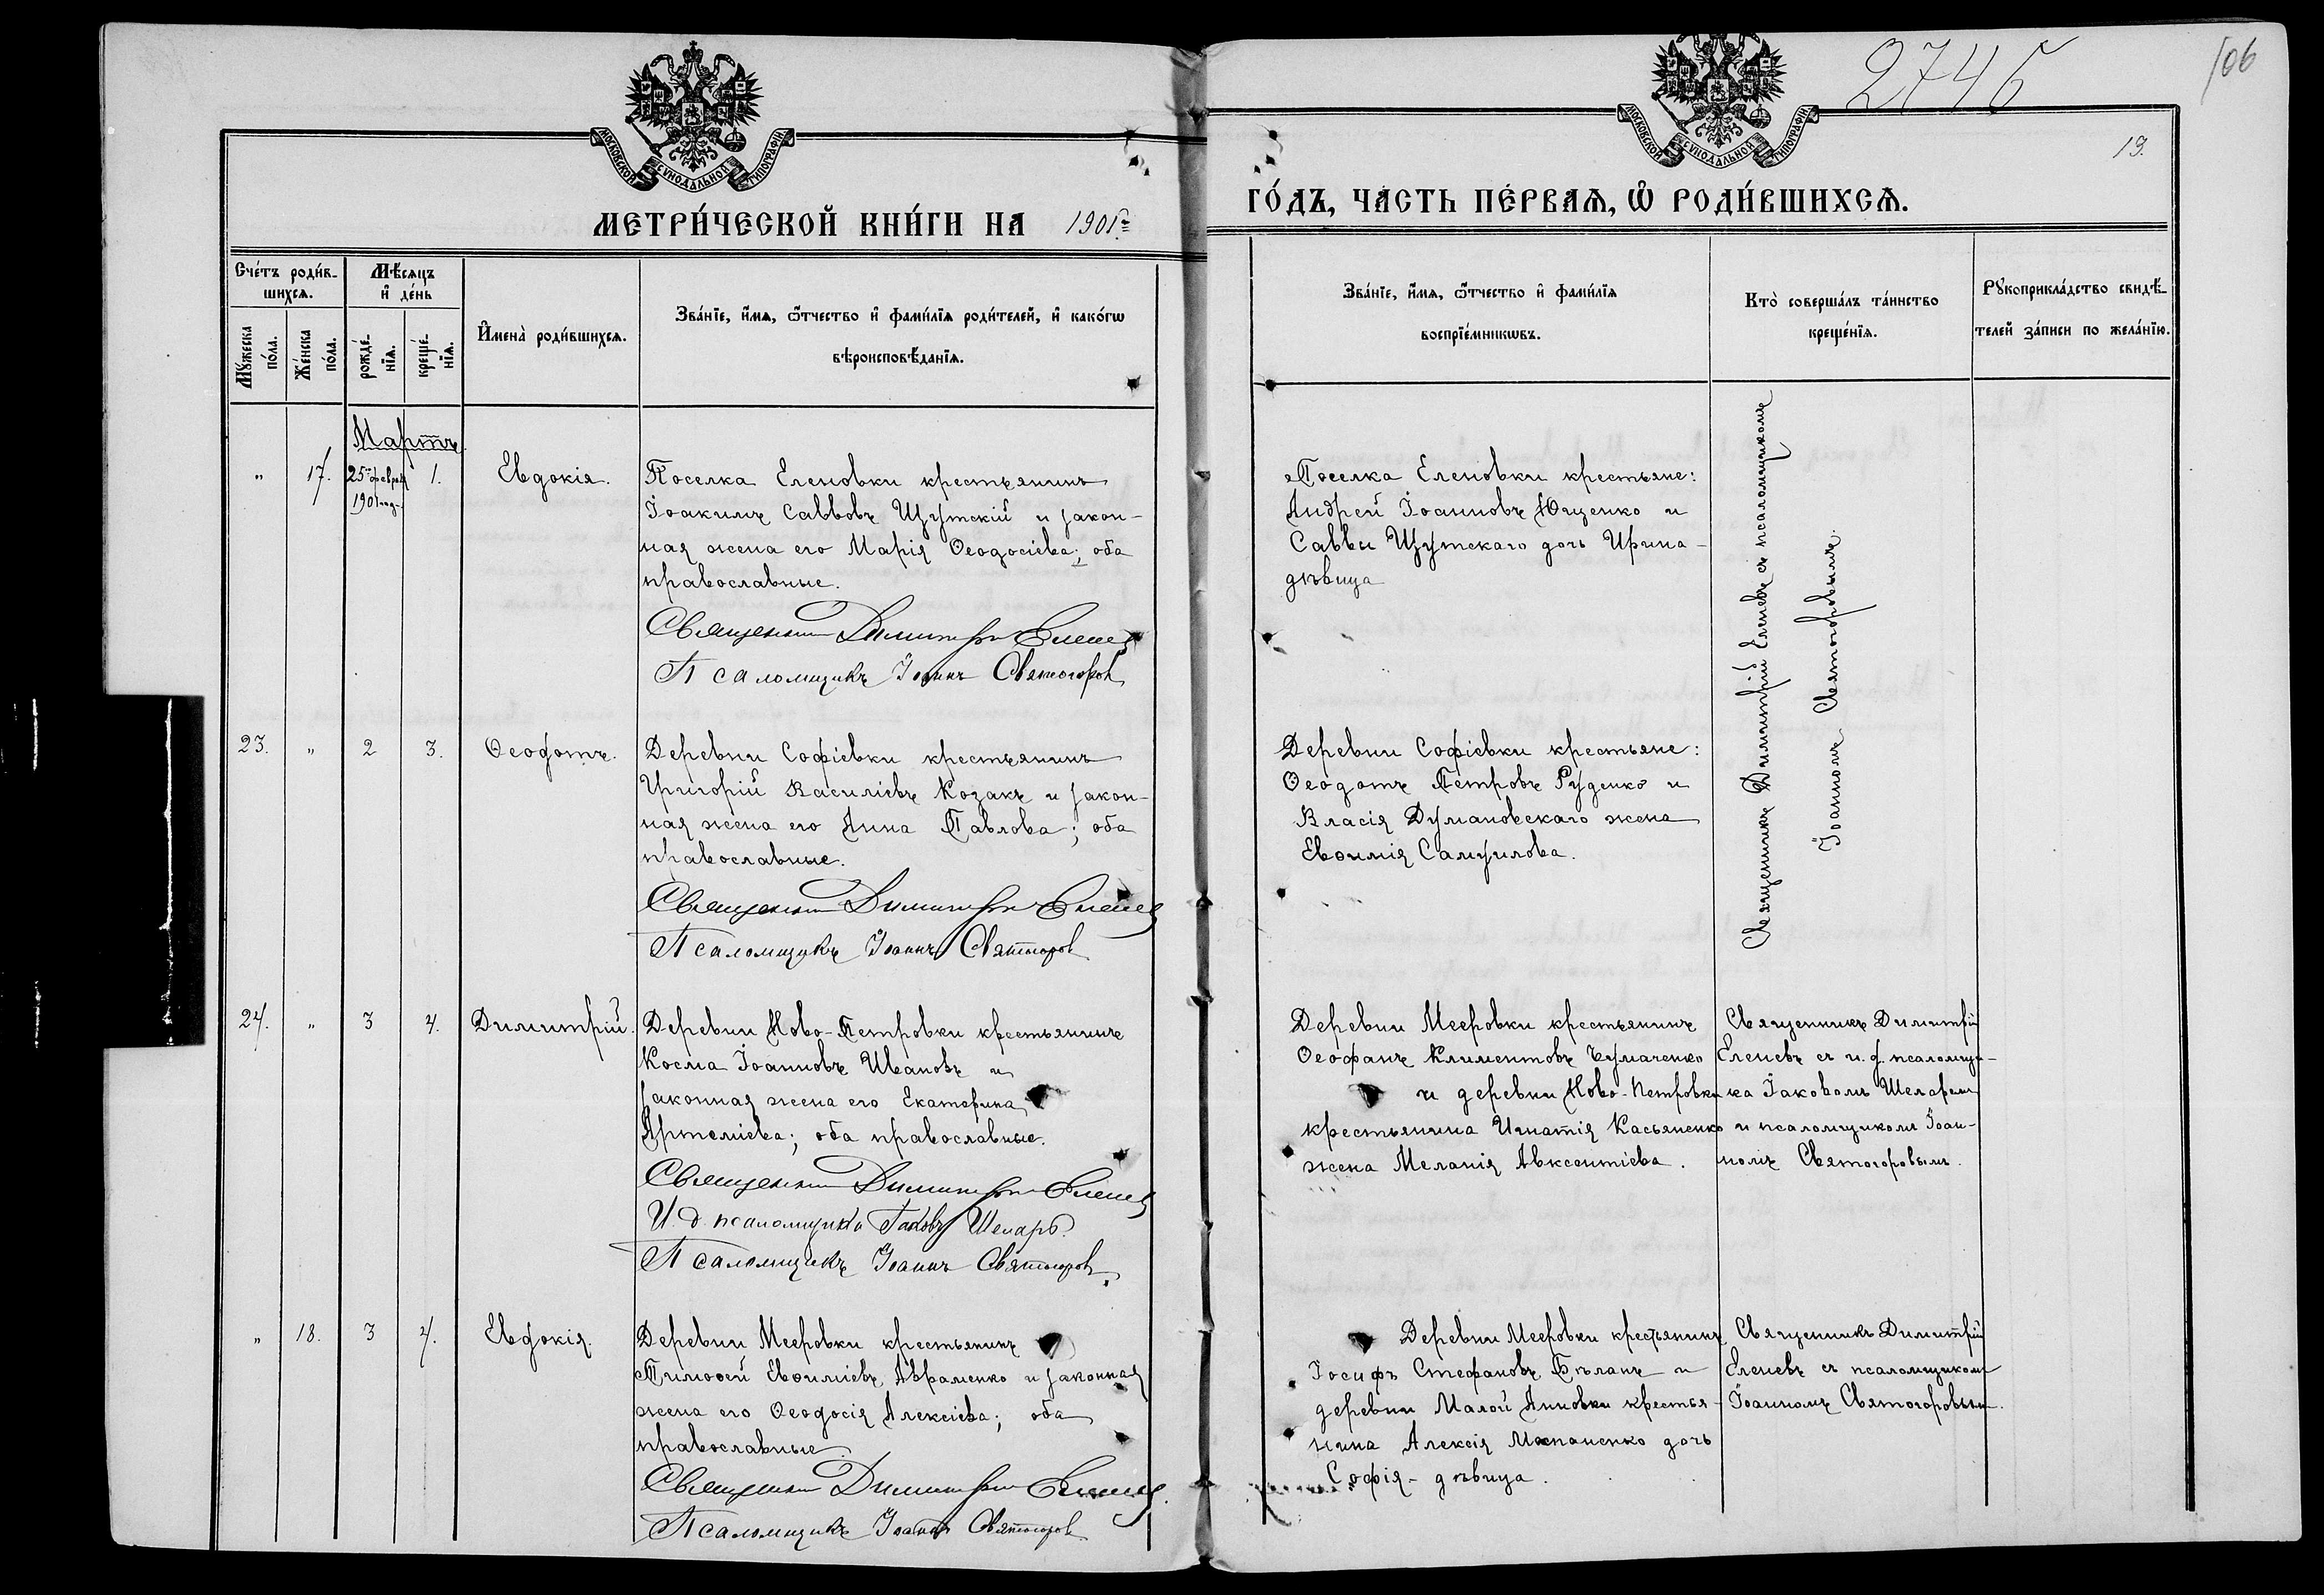 2746
106
19.
МОСКОВСКОЙ СѴНОДАЛЬНОЙ ТИПОГРАФІИ
МОСКОВСКОЙ СѴНОДАЛЬНОЙ ТИПОГРАФІИ
МЕТРИ́ЧЕСКОЙ КНИ́ГИ НА 1901 г.
ГО́ДЪ, ЧА́СТЬ ПЕ́РВАѦ, Ѡ҆ РОДИ́ВШИХСѦ.
Сче́тъ роди́в-
шихсѧ.
Мѣ́сѧцъ
и҆ де́нь
Мꙋ́жеска
по́ла.
Же́нска
по́ла.
рожде́-
нїѧ.
креще́-
нїѧ.
И҆мена̀ роди́вшихсѧ.
Зва́нїе, и҆́мѧ, ѻ҆́тчество и҆ фами́лїѧ роди́телей, и҆ како́гѡ
вѣроисповѣ́данїѧ.
Зва́нїе, и҆́мѧ, ѻ҆́тчество и҆ фами́лїѧ
воспрїе́мникѡвъ.
Кто̀ соверша́лъ та́инство
креще́нїѧ.
Рꙋкоприкла́дство свидѣ́-
телей за́писи по жела́нїю.
Мартъ
„ 17. 25 февраля 1. Евдокія.
1901 год.
Поселка Еленовки крестьянинъ
Іоакимъ Саввовъ Щутскій и закон-
ная жена его Марія Ѳеодосіева; оба
православные.
Священникъ Димитрій Еленевъ
Псаломщикъ Іоаннъ Святогоровъ
Поселка Еленовки крестьяне:
Андрей Іоанновъ Ющенко и
Саввы Щутскаго дочь Ирина-
дѣвица
Священникъ Димитрій Еленевъ съ псаломщикомъ
Іоанномъ Святогоровымъ.
23. „ 2 3. Ѳеодотъ.
Деревни Софіевки крестьянинъ
Григорій Василіевъ Козакъ и закон-
ная жена его Анна Павлова; оба
православные.
Священникъ Димитрій Еленевъ
Псаломщикъ Іоаннъ Святогоровъ
Деревни Софіевки крестьяне:
Ѳеодотъ Петровъ Руденко и
Власія Думановскаго жена
Евѳимія Самуилова.
24. „ 3 4. Димитрій.
Деревни Ново-Петровки крестьянинъ
Косма Іоанновъ Ивановъ и
законная жена его Екатерина
Артеміева; оба православные.
Священникъ Димитрій Еленевъ
И. д. псаломщика Іаковъ Шеларь.
Псаломщикъ Іоаннъ Святогоровъ
Деревни Мееровки крестьянинъ
Ѳеофанъ Климентовъ Чумаченко
и деревни Ново-Петровки
крестьянина Игнатія Касьяненко
жена Меланія Авксентіева.
Священникъ Димитрій
Еленевъ съ и. д. псаломщи-
ка Іаковомъ Шеларем
и псаломщикомъ Іоан-
номъ Святогоровымъ.
„ 18. 3 4. Евдокія.
Деревни Мееровки крестьянинъ
Тимоѳей Евѳиміевъ Авраменко и законная
жена его Ѳеодосія Алексіева; оба
православные
Священникъ Димитрій Еленевъ.
Псаломщикъ Іоаннъ Святогоровъ
Деревни Мееровки крестьянинъ
Іосифъ Стефановъ Бѣланъ и
деревни Малой Анновки крестья-
нина Алексія Мопаненко дочь
Софія - дѣвица.
Священникъ Димитрій
Еленевъ съ псаломщикомъ
Іоанномъ Святогоровымъ.